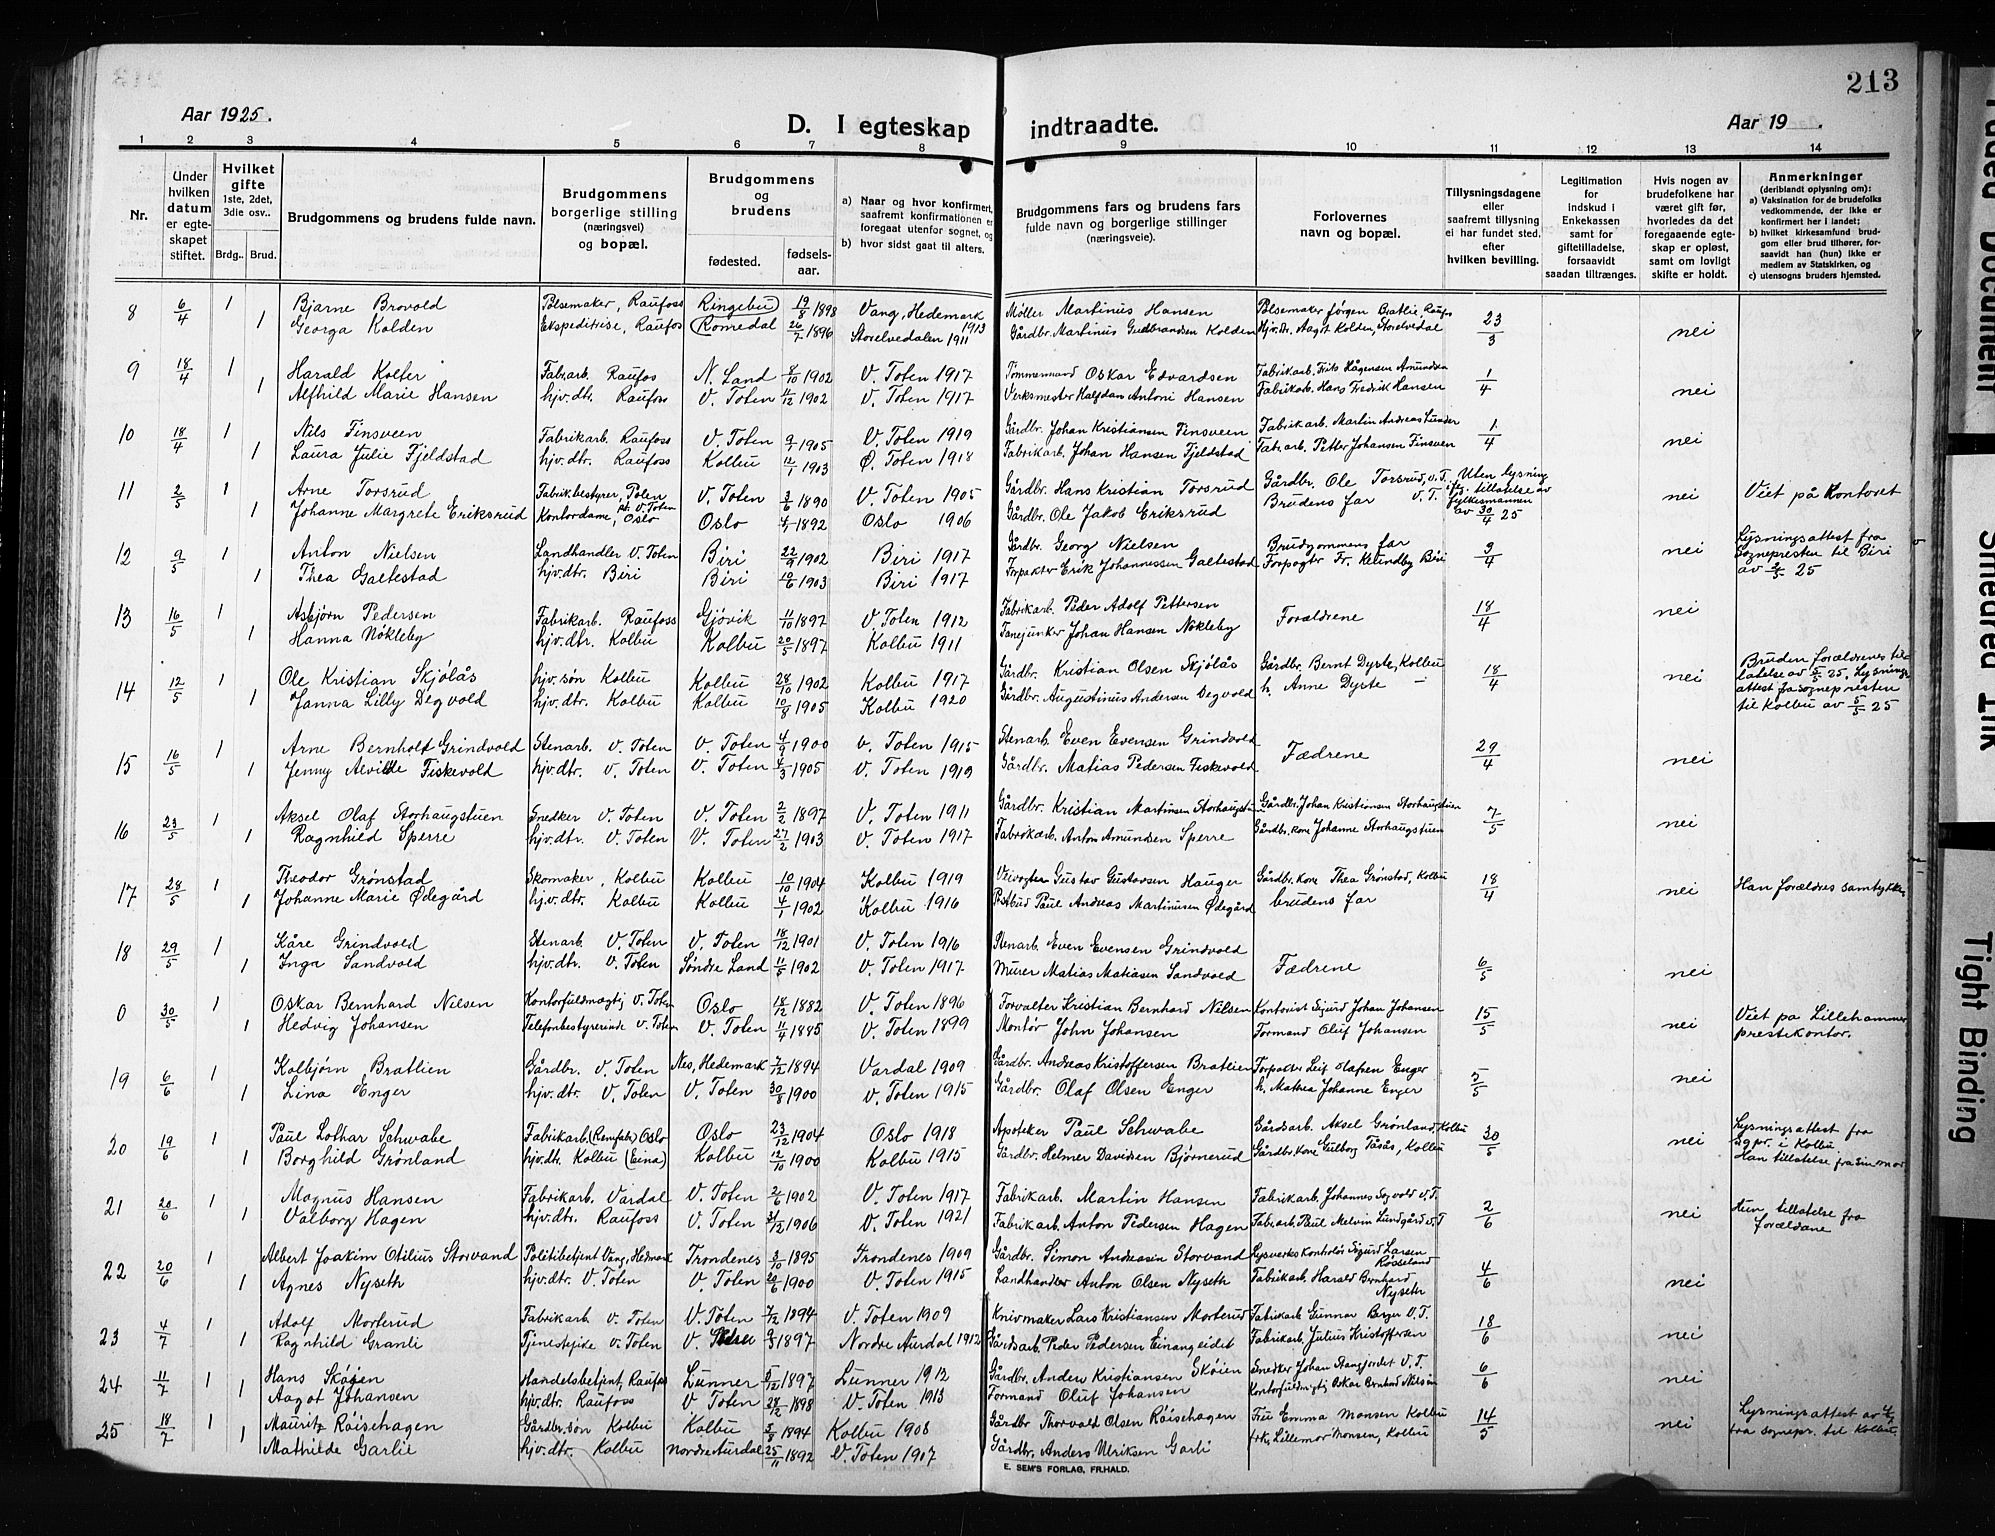 213
Aar 1925.
D. I egteskap indtraadte.
Aar 19 .
1 2 3 4 5 6 7 8 9 10 11 12 13 14
Nr.
Under hvilken datum er egteskapet stiftet.
Hvilket gifte 1ste, 2det, 3die osv..
Brdg.. Brud.
Brudgommens og brudens fulde navn.
Brudgommens borgerlige stilling (næringsvei) og bopæl.
Brudgommens og brudens
fødested. fødselsaar.
a) Naar og hvor konfirmert, saafremt konfirmationen er foregaat utenfor sognet, og
b) hvor sidst gaat til alters.
Brudgommens fars og brudens fars fulde navn og borgerlige stillinger (næringsveie).
Forlovernes navn og bopæl.
Tillysningsdagene eller saafremt tillysning ei har fundet sted, efter hvilken bevilling.
Legitimation for indskud i Enkekassen samt for giftetilladelse, forsaavidt saadan tiltrænges.
Hvis nogen av brudefolkene har været gift før, hvorledes da det foregaaende egteskap er opløst, samt om lovligt skifte er holdt.
Anmerkninger (deriblandt oplysning om):
a) Vaksination for de brudefolks vedkommende, der ikke er konfirmert her i landet;
b) hvilket kirkesamfund brudgom eller brud tilhører, forsaavidt han (hun) ikke er medlem av Statskirken, og
c) utensogns bruders hjemsted.
8 6/4 1 Bjarne Brovold Pølsemaker, Raufoss Ringebu 19/8 1898 Vang, Hedemark 1913 Møller Martinus Hansen Pølsemaker Jørgen Bratlie, Raufoss 23/3 nei
1 Georga Kolden Ekspeditrise, Raufoss Romedal 26/7 1896 Storelvedalen 1911 Gårdbr. Martinus Gudbrandsen Kolden Hjv.dr. Aagot Kolden, Storelvedal
9 18/4 1 Harald Kolter Fab.arb. Raufos N. Land 8/10 1902 V. Toten 1917 Tømmermand Oskar Edvardsen Fabrikarb. Frits Hågensen Amundsen 1/4 nei
1 Alfhild Marie Hansen hjv.dtr. Raufoss V. Toten /12 1902 V. Toten 1917 Verksmester Halfdan Antoni Hansen Fabrikarb. Hans Fredrik Hansen
10 18/4 1 Nils Finsveen Fabrikarb. Raufoss V. Toten 9/1 1905 V. Toten 1919 Gårdbr. Johan Kristiansen Finsveen Fabrikarb. Martin Andreas Lunder 1/4 nei
1 Laura Julie Fjeldstad hjv.dtr. Raufoss Kolbu 12/1 1903 Ø. Toten 1918 Fabrikarb. Johan Hansen Fjeldstad Fab.arb. Petter Johansen Finsveen
11 2/5 1 Arne Torsrud Fabrikbestyrer, Polen pt. V. Toten V. Toten 3/6 1890 V. Toten 1905 Gårdbr. Hans Kristian Torsrud Gårdbr. Ole Torsrud, V.T. Uten lysning tillatelse av fylkesmannen av 30/4 25 nei Viet på Kontoret
1 Johanne Margrete Eriksrud Kontordame, Oslo Oslo 1892 Oslo 1906 Gårdbr. Ole Jakob Eriksrud Brudens far V.T.
12 9/5 1 Anton Nielsen Landhandler V. Toten Biri 22/9 1902 Biri 1917 Gårdbr. Georg Nielsen Brudgommens far 3/4 nei Lysningsattest fra Sognepresten til Biri av 2/5 25
1 Thea Galtestad hjv.dtr. Biri Biri 10/6 1903 Biri 1917 Forpakter Erik Johannessen Galtestad Forpagter Fr. Kelindby Biri
13 16/5 1 Asbjørn Pedersen Fabrikarb. Raufoss Gjøvik 11/10 1897 V. Toten 1912 Fabrikarb. Peder Adolf Pettersen Forældrene 18/4 nei
1 Hanna Nøkleby hjv.dtr. Kolbu Kolbu 20/5 1897 Kolbu 1911 Fanejunker Johan Hansen Nøkleby
14 12/5 1 Ole Kristian Skjølås hjv.søn Kolbu Kolbu 28/10 1902 Kolbu 1917 Gårdbr. Kristian Olsen Skjølås Gårdbr. Bernt Dyrte, Kolbu 18/4 nei Bruden forældrenes tillatelse av 5/5 25, Lysningsattest fra sognepresten til Kolbu av 5/5 25
1 Janna Lilly Degvold hjv.dtr. Kolbu Kolbu 10/8 1905 Kolbu 1920 Gårdbr. Augustinus Andersen Degvold h. Anne Dyrte –
15 16/5 1 Arne Bernholf Grindvold Stenarb. V. Toten V. Toten 4/9 1900 V. Toten 1915 Stenarb. Even Evensen Grindvold Fædrene 29/4 nei
1 Jenny Alvilde Fiskevold hjv.dtr. V. Toten V. Toten 4/3 1905 V. Toten 1919 Gårdbr. Matias Pedersen Fiskevold
16 23/5 1 Aksel Olaf Storhaugstuen Snedker V. Toten V. Toten 2/2 1897 V. Toten 1911 Gårdbr. Kristian Martinsen Storhaugstuen Gårdbr. Johan Kristiansen Storhaugstuen 7/5 nei
1 Ragnhild Sperre hjv.dtr. V. Toten V. Toten 27/2 1903 V. Toten 1917 Fabrikarb. Anton Amundsen Sperre Gårdbr. kone Johanne Storhaugstuen
17 28/5 1 Theodor Grønstad Skomaker, Kolbu Kolbu 10/10 1904 Kolbu 1919 Veivogter Gustav Gustavsen Hauger Gårdbr. kone Thea Grønstad, Kolbu 18/4 nei Han forældres samtykke
1 Johanne Marie Ødegård hjv.dtr. Kolbu Kolbu 4/1 1902 Kolbu 1916 Postbud Paul Andreas Martinusen Ødegård brudens far
18 29/5 1 Kåre Grindvold Stenarb. V. Toten V. Toten 18/12 1901 V. Toten 1916 Stenarb. Even Evensen Grindvold Fædrene 6/5 nei
1 Inga Sandvold hjv.dtr. V. Toten Søndre Land 11/5 1902 V. Toten 1917 Murer Matias Matiasen Sandvold
0 30/5 1 Oskar Bernhard Nilsen Kontorfuldmægtig V. Toten Oslo 18/12 1882 V. Toten 1896 Forvalter Kristian Bernhard Nilsen Kontorist Sigurd Johan Johansen 15/5 nei Viet pa Lillehammer prestekontor.
1 Hedvig Johansen Telefonbestyrerinde V. Toten V. Toten 11/4 1885 V. Toten 1899 Montør John Johansen Formand Oluf Johansen
19 6/6 1 Kolbjørn Bratlien Gårdbr. V. Toten Nes, Hedemark 7/12 1894 Vardal 1909 Gårdbr. Andreas Kristoffersen Bratlien Forpakter Leif Olafsen Enger 5/5 nei
1 Lina Enger hjv.dtr. V. Toten V. Toten 30/8 1900 V. Toten 1915 Gårdbr. Olaf Olsen Enger h. Mathea Johanne Enger
20 19/6 1 Paul Lothar Schwabe Fabrikarb. (Remfabr.) Oslo Oslo 23/12 1904 Oslo 1918 Apoteker Paul Schwabe Gårdsarb. Aksel Grønland, Kolbu 30/5 nei Lysningsattest fra sgpr. i Kolbu. Han tillatelse fra sin mor
1 Borghild Grønland hjv.dtr. Kolbu (Eina) Kolbu 12/10 1900 Kolbu 1915 Gårdbr. Helmer Davidsen Bjørnerud Gårdbr. kone Gulborg Tåsås, Kolbu
21 20/6 1 Magnus Hansen Fabrikarb. Vardal V. Toten 2/6 1902 V. Toten 1917 Fabrikarb. Martin Hansen Fabrikarb. Johannes Sogvold V.T. 2/6 nei Hun tillatelse fra forældrene
1 Valborg Hagen hjv.dtr. Raufoss V. Toten 31/12 1906 V. Toten 1921 Fabrikarb. Anton Pedersen Hagen Fabr.arb. Paul Melvin Lundgård V.T
22 20/6 1 Albert Joakim Otilius Storvand Politibetjent Vang, Hedmark Trondenes 3/10 1895 Trondenes 1909 Gårdbr. Simon Andreasin Storvand Lysverks Kontrolør Sigurd Larsen Rösseland 4/6 nei
1 Agnes Nyseth hjv.dtr. V. Toten V. Toten 20/6 1900 V. Toten 1915 Landhandler Anton Olsen Nyseth Fabrikarb. Harald Bernhard Nyseth
23 4/7 1 Adolf Morterud Fabrikarb V. Toten V. Toten 7/2 1894 V. Toten 1909 Knivmaker Lars Kristiansen Morterud Fabrikarb. Gunnar Berger V.T. 18/6 nei
1 Ragnhild Granli Tjenestepike V. Toten V. 1897 Nordre Aurdal 1912 Gårdsarb. Peder Pedersen Einangseidet Fabrikarb. Julius Kristoffersen
24 11/7 1 Hans Skøien Handelsbetjent, Raufoss Lunner 5/12 1897 Lunner 1912 Gårdbr. Anders Kristiansen Skøien Snedker Johan Stangjordet V.T. 6/6 nei
1 Aagot Johansen hjv.dtr. Raufoss V Toten 28/2 1898 V. Toten 1913 Formand Oluf Johansen Kontorfuldmgtig Oskar Bernhard Nilsen
25 18/7 1 Mauritz Røisehagen Gårdbr. søn Kolbu Kolbu 3/8 1894 Kolbu 1908 Gårdbr Thorvald Olsen Røisehagen Fru Emma Monsen Kolbu 14/5 nei Lysningsattest av fra sognepr. til Kolbu.
1 Mathilde Garlie hjv.dtr. Kolbu nordre Aurdal 25/11 1892 V. Toten 1907 Gårdbr. Anders Ulriksen Garli frk, Lillemor Monsen, Kolbu
E. SEM'S FORLAG, FR.HALD.
Faded Document
Smeared Ink
Tight Binding